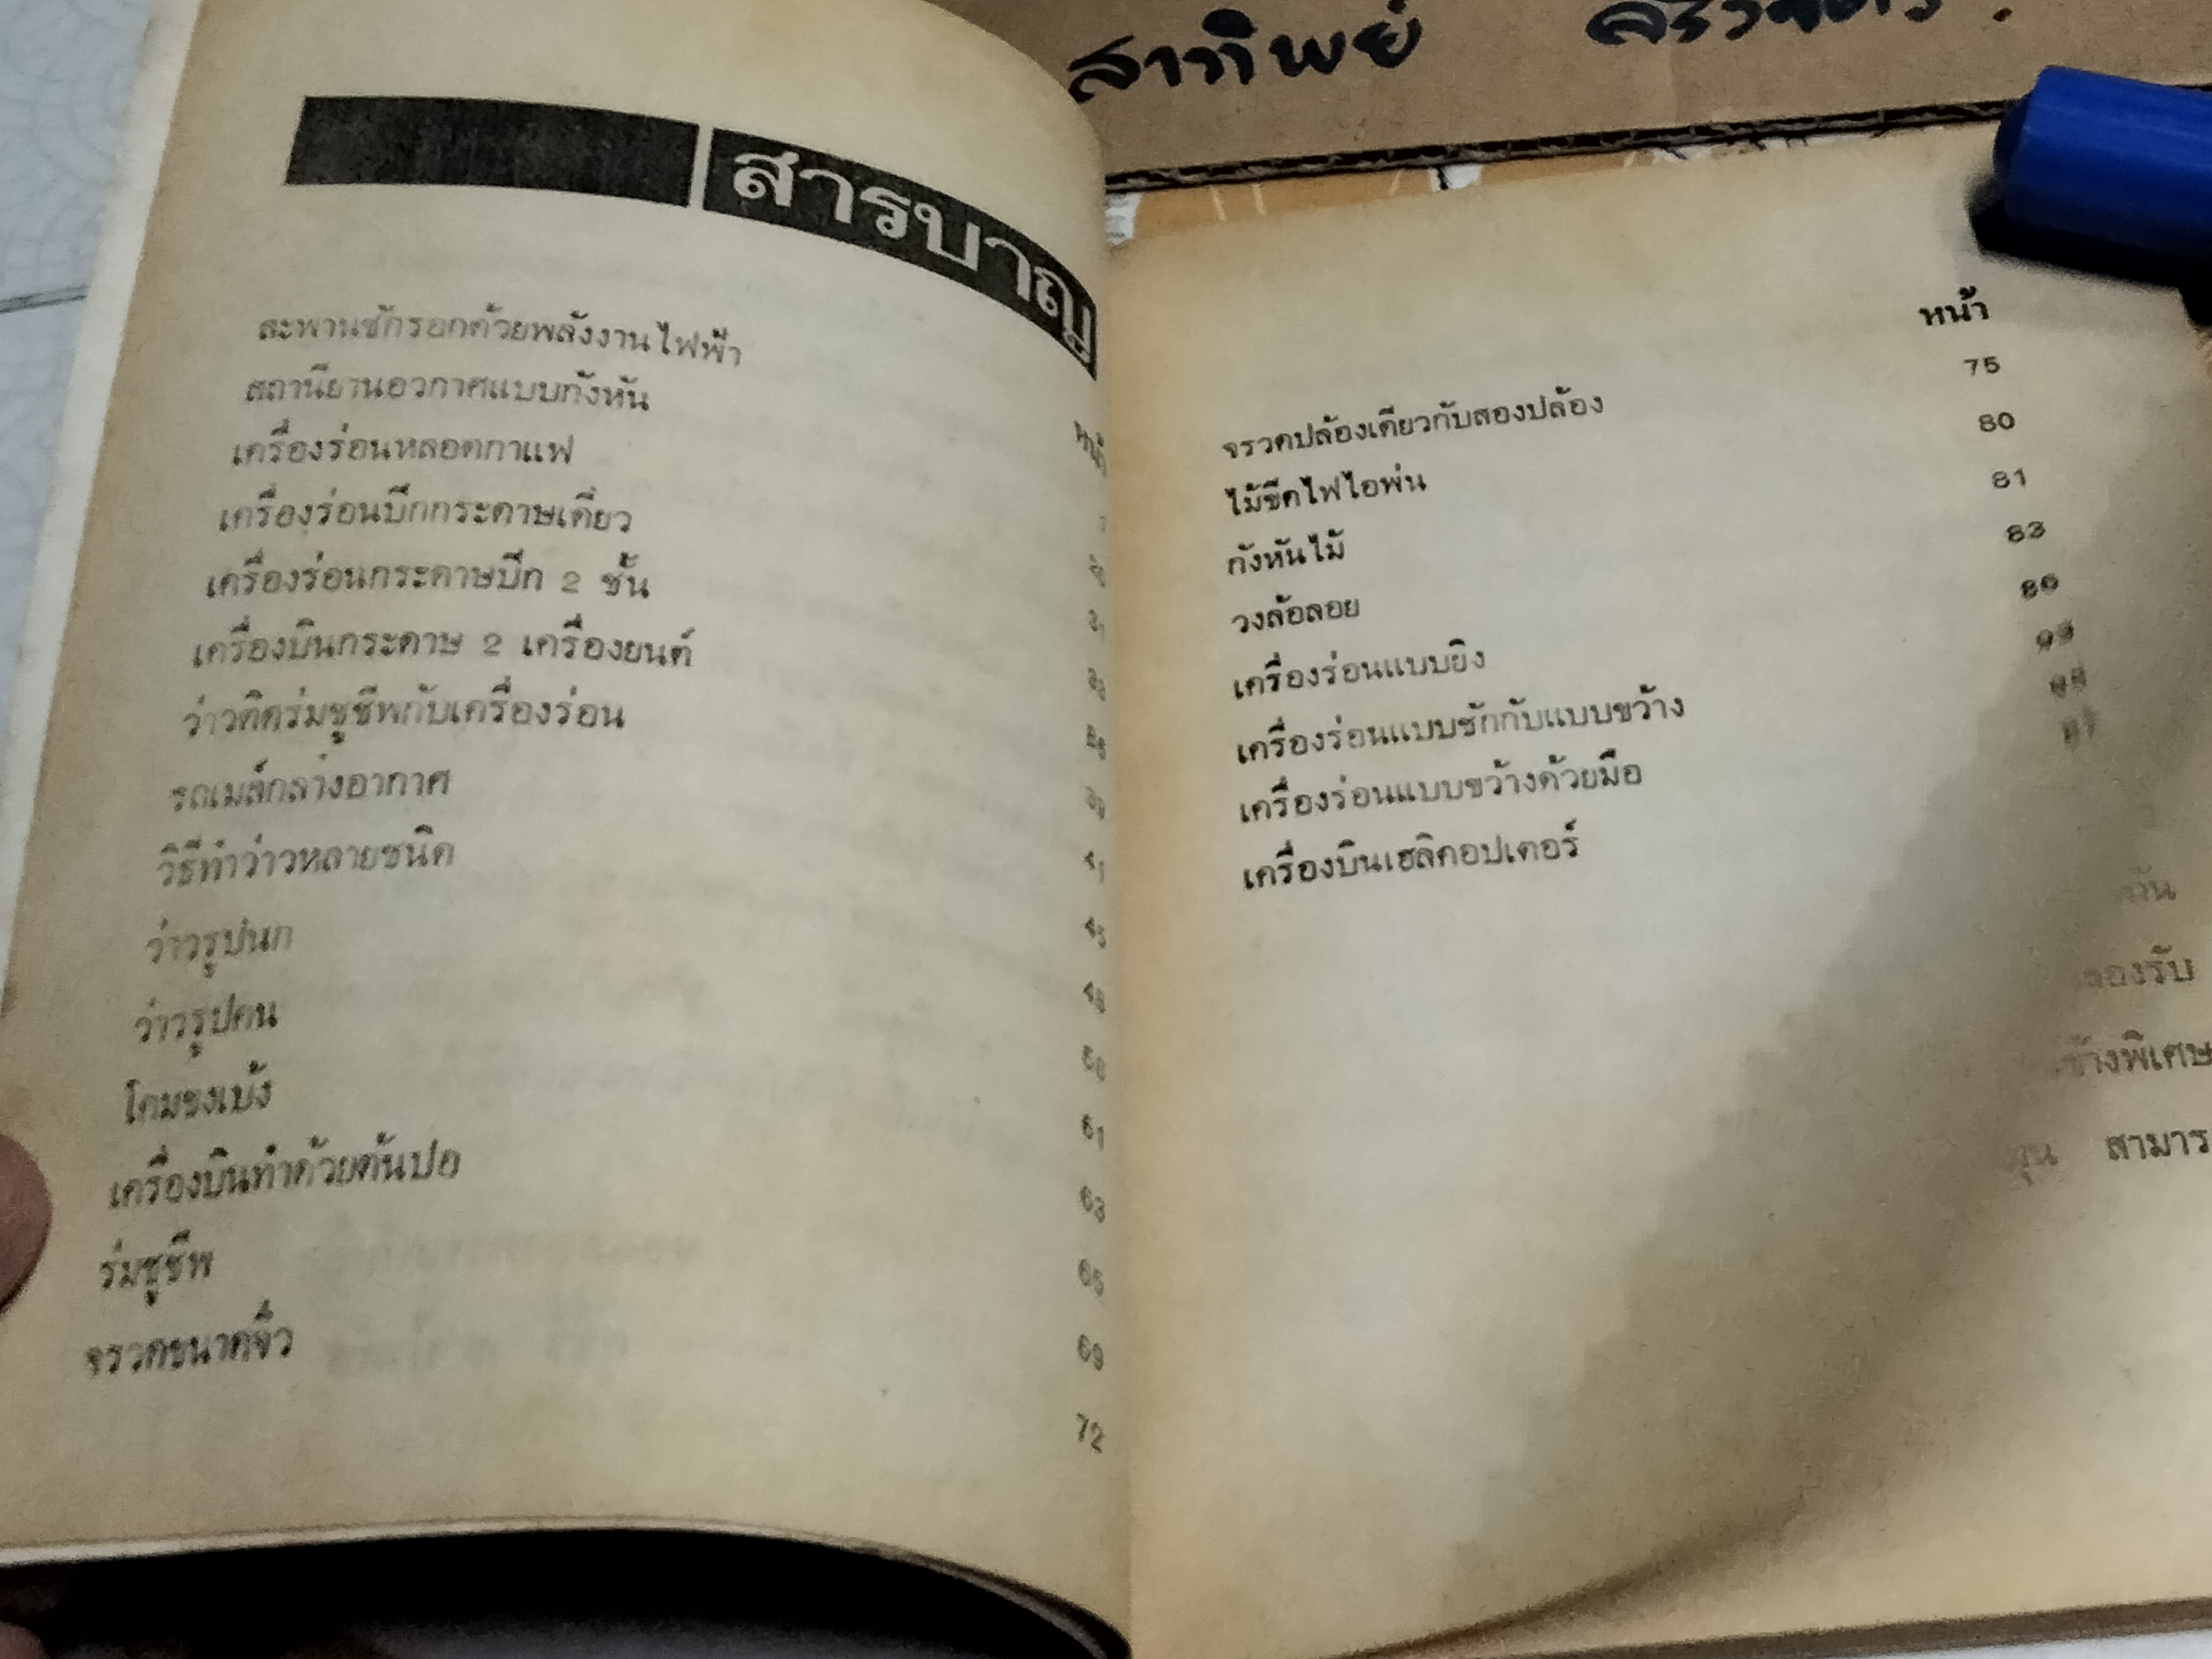 สาทิพย์
สารบาญ
สะพานชักรอกด้วยพลังงานไฟฟ้า
สถานียานอวกาศแบบกังหัน
เครื่องร่อนหลอดกาแฟ
เครื่องร่อนปีกกระดาษเดี่ยว
เครื่องร่อนกระดาษปีก 2 ชั้น
เครื่องบินกระดาษ 2 เครื่องยนต์
ว่าวติดร่มชูชีพกับเครื่องร่อน
รถเมล์กลางอากาศ
วิธีทำว่าวหลายชนิด
ว่าวรูปนก
ว่าวรูปคน
โคมขงเบ้ง
เครื่องบินทำด้วยต้นปอ
ร่มชูชีพ
จรวดขนาดจิ๋ว
หน้า
41
45
48
50
61
63
65
69
72
หน้า
จรวดปล้องเดียวกับสองปล้อง 75
ไม้ขีดไฟไอพ่น 80
กังหันไม้ 81
วงล้อลอย 83
เครื่องร่อนแบบยิง 86
เครื่องร่อนแบบชักกับแบบขว้าง
เครื่องร่อนแบบขว้างด้วยมือ
เครื่องบินเฮลิคอปเตอร์
องรับ
ข้างพิเศษ
สามาร